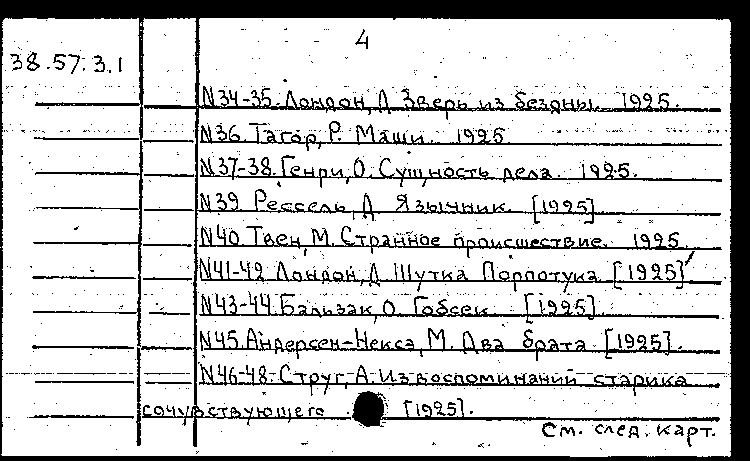 4
38.57.3.1
N34-35. Лондон, Д. Зверь из бездны. 1925.
N36. Тагор, Р. Маши. 1925
N37-38. Генри, О. Сущность дела. 1925.
N39. Рессель, Д. Язычник. [1925]
N40. Твен, М. Странное происшествие. 1925.
N41-42. Лондон, Д. Шутка Порпотука. [1925]
N43-44. Бальзак, О. Гобсек. [1925].
N45. Андерсен-Нексэ, М. Два брата. [1925].
N46-48. Струг, А. Из воспоминаний старика
сочувствующего. [1925].
См. след. карт.